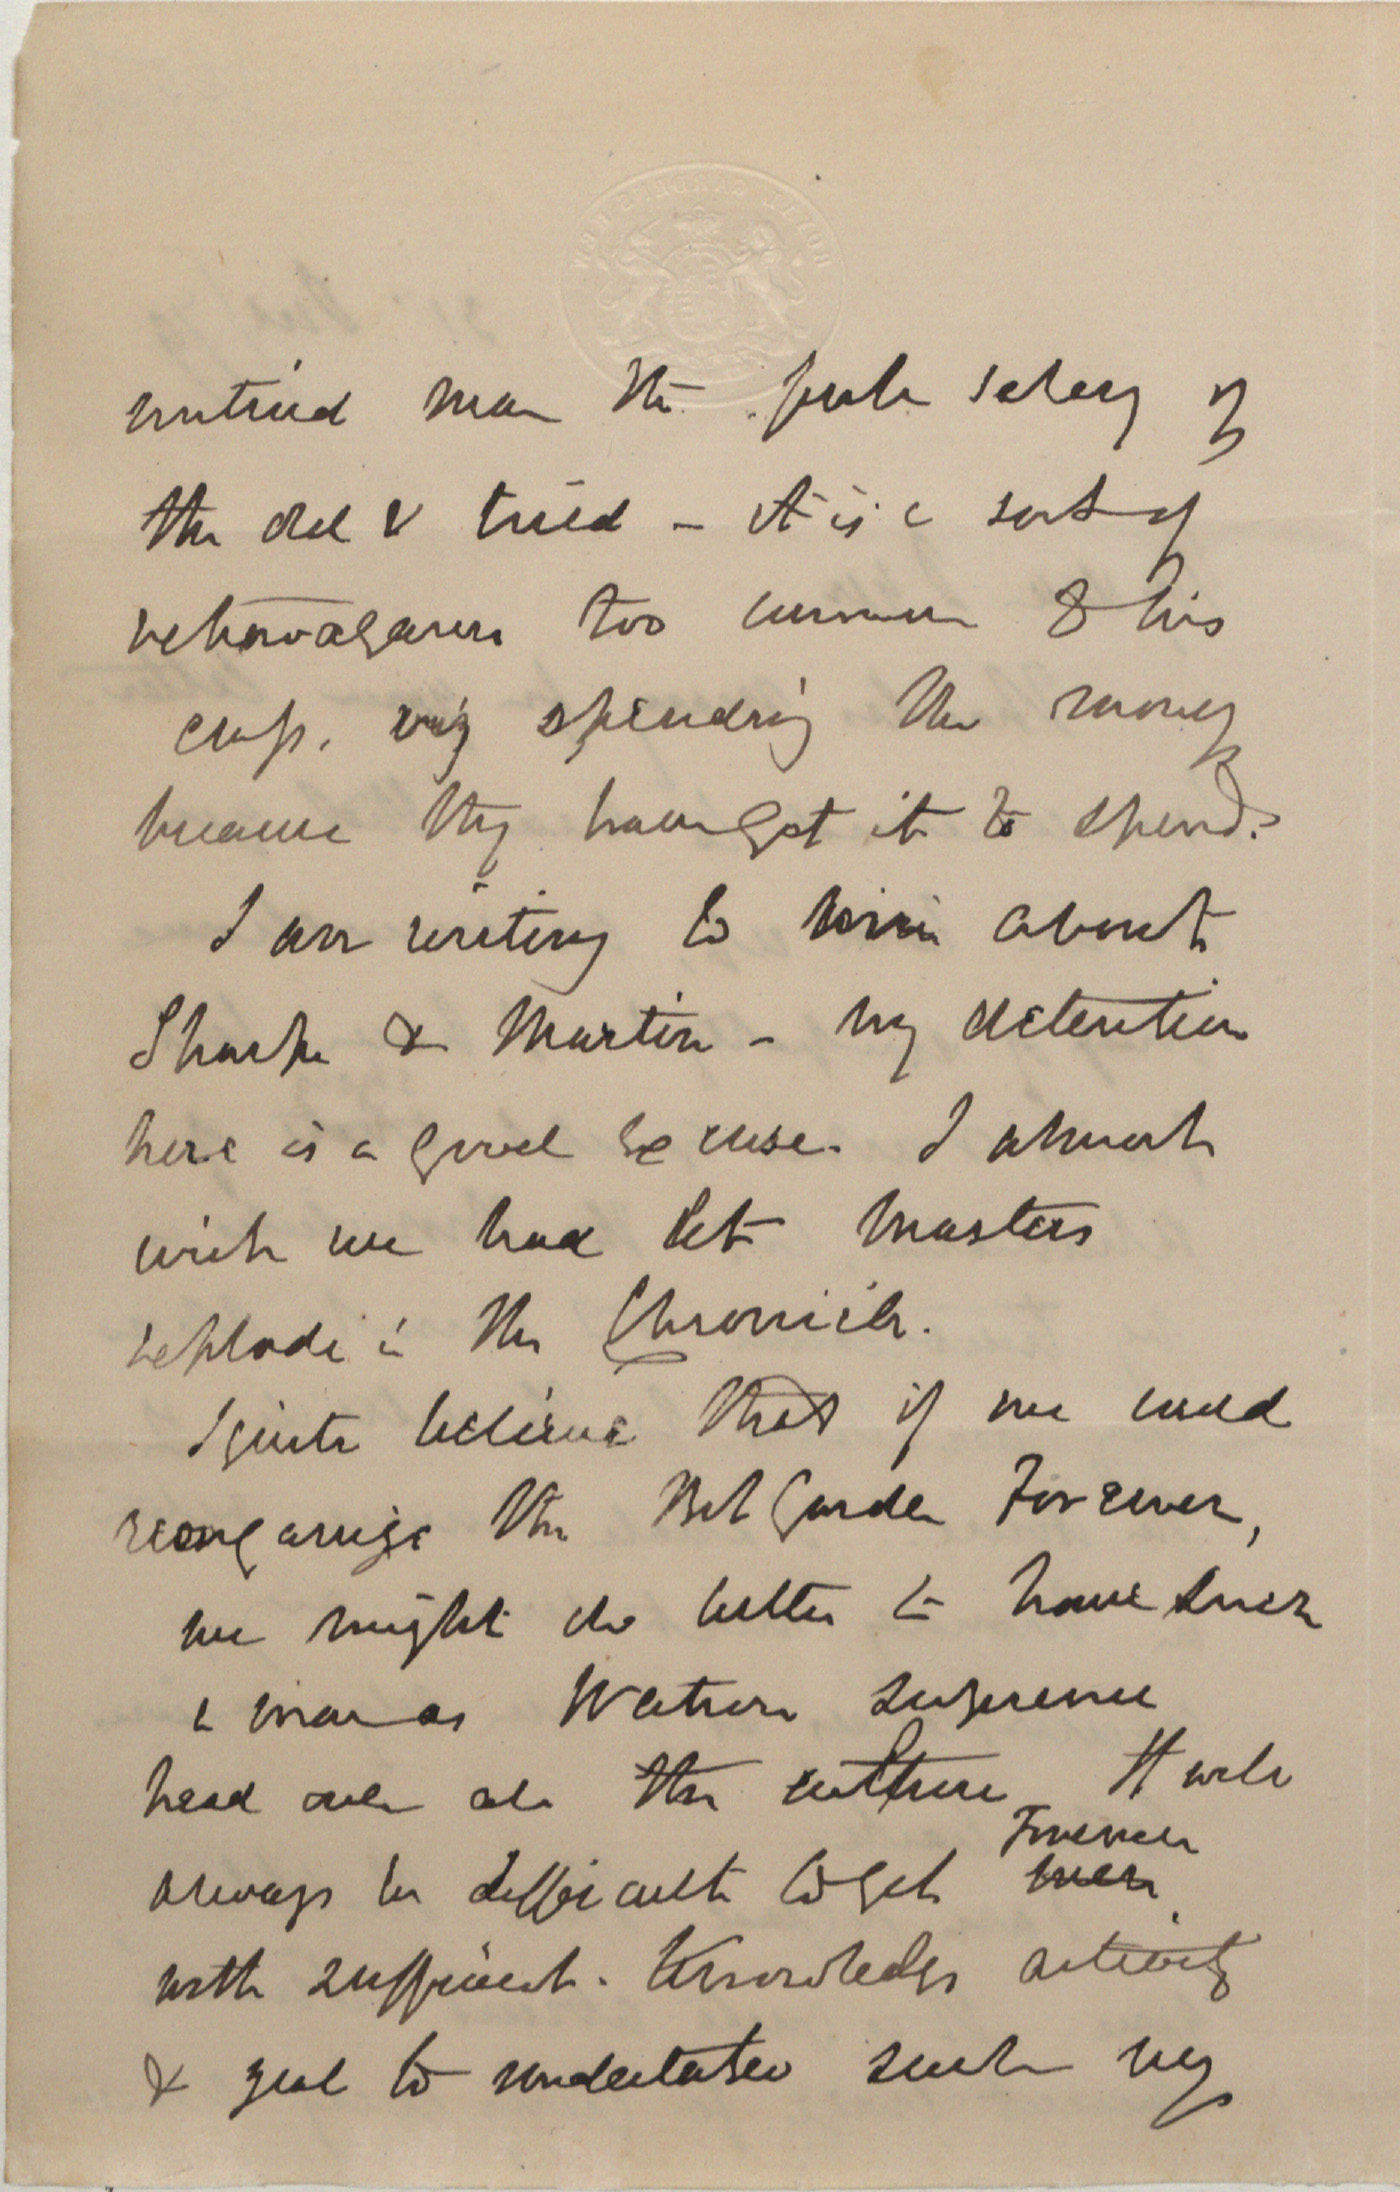 untried man the full salary of
the old & tried – it is a sort of
extravagance too common to his
craft. viz spending the money
because they have got it to spend.
I am writing to him about
Sharpe & Martin – my detention
here is a good excuse. I almost
wish we had let Masters
explode in the Chronicle.
I quite believe that if we could
reorganize the Bot Garden Foremen,
we might do better to have such
a man as Watson supreme
head over all the culture It will
always be difficult to get Foremen men
with sufficient. Knowledge activity
& zeal to undertake such